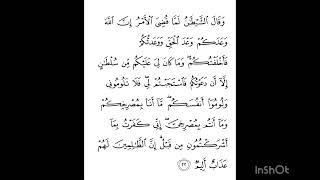 وَقَالَ ٱلشَّيْطَٰنُ لَمَّا قُضِىَ ٱلْأَمْرُ إِنَّ ٱللَّهَ
وَعَدَكُمْ وَعْدَ ٱلْحَقِّ وَوَعَدتُّكُمْ
فَأَخْلَفْتُكُمْ ۖ وَمَا كَانَ لِىَ عَلَيْكُم مِّن سُلْطَٰنٍ
إِلَّآ أَن دَعَوْتُكُمْ فَٱسْتَجَبْتُمْ لِى ۖ فَلَا تَلُومُونِى
وَلُومُوٓا۟ أَنفُسَكُم ۖ مَّآ أَنَا۠ بِمُصْرِخِكُمْ
وَمَآ أَنتُم بِمُصْرِخِىَّ ۖ إِنِّى كَفَرْتُ بِمَآ
أَشْرَكْتُمُونِ مِن قَبْلُ ۗ إِنَّ ٱلظَّٰلِمِينَ لَهُمْ
عَذَابٌ أَلِيمٌ ٢٢
InShOt